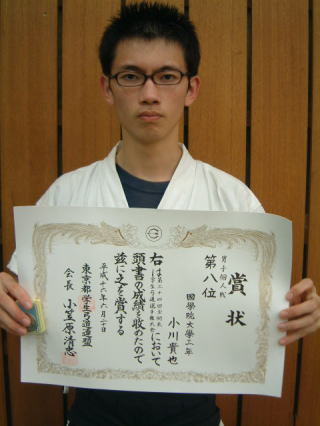 賞状
男子個人戦
第八位
國學院大學三年
小川貴也
右は第三十四回全関東
学生弓道選手権大会において
頭書の成績を收めたので
茲に之を賞する
平成十六年六月二十日
東京都学生弓道連盟
会長 小笠原清忠